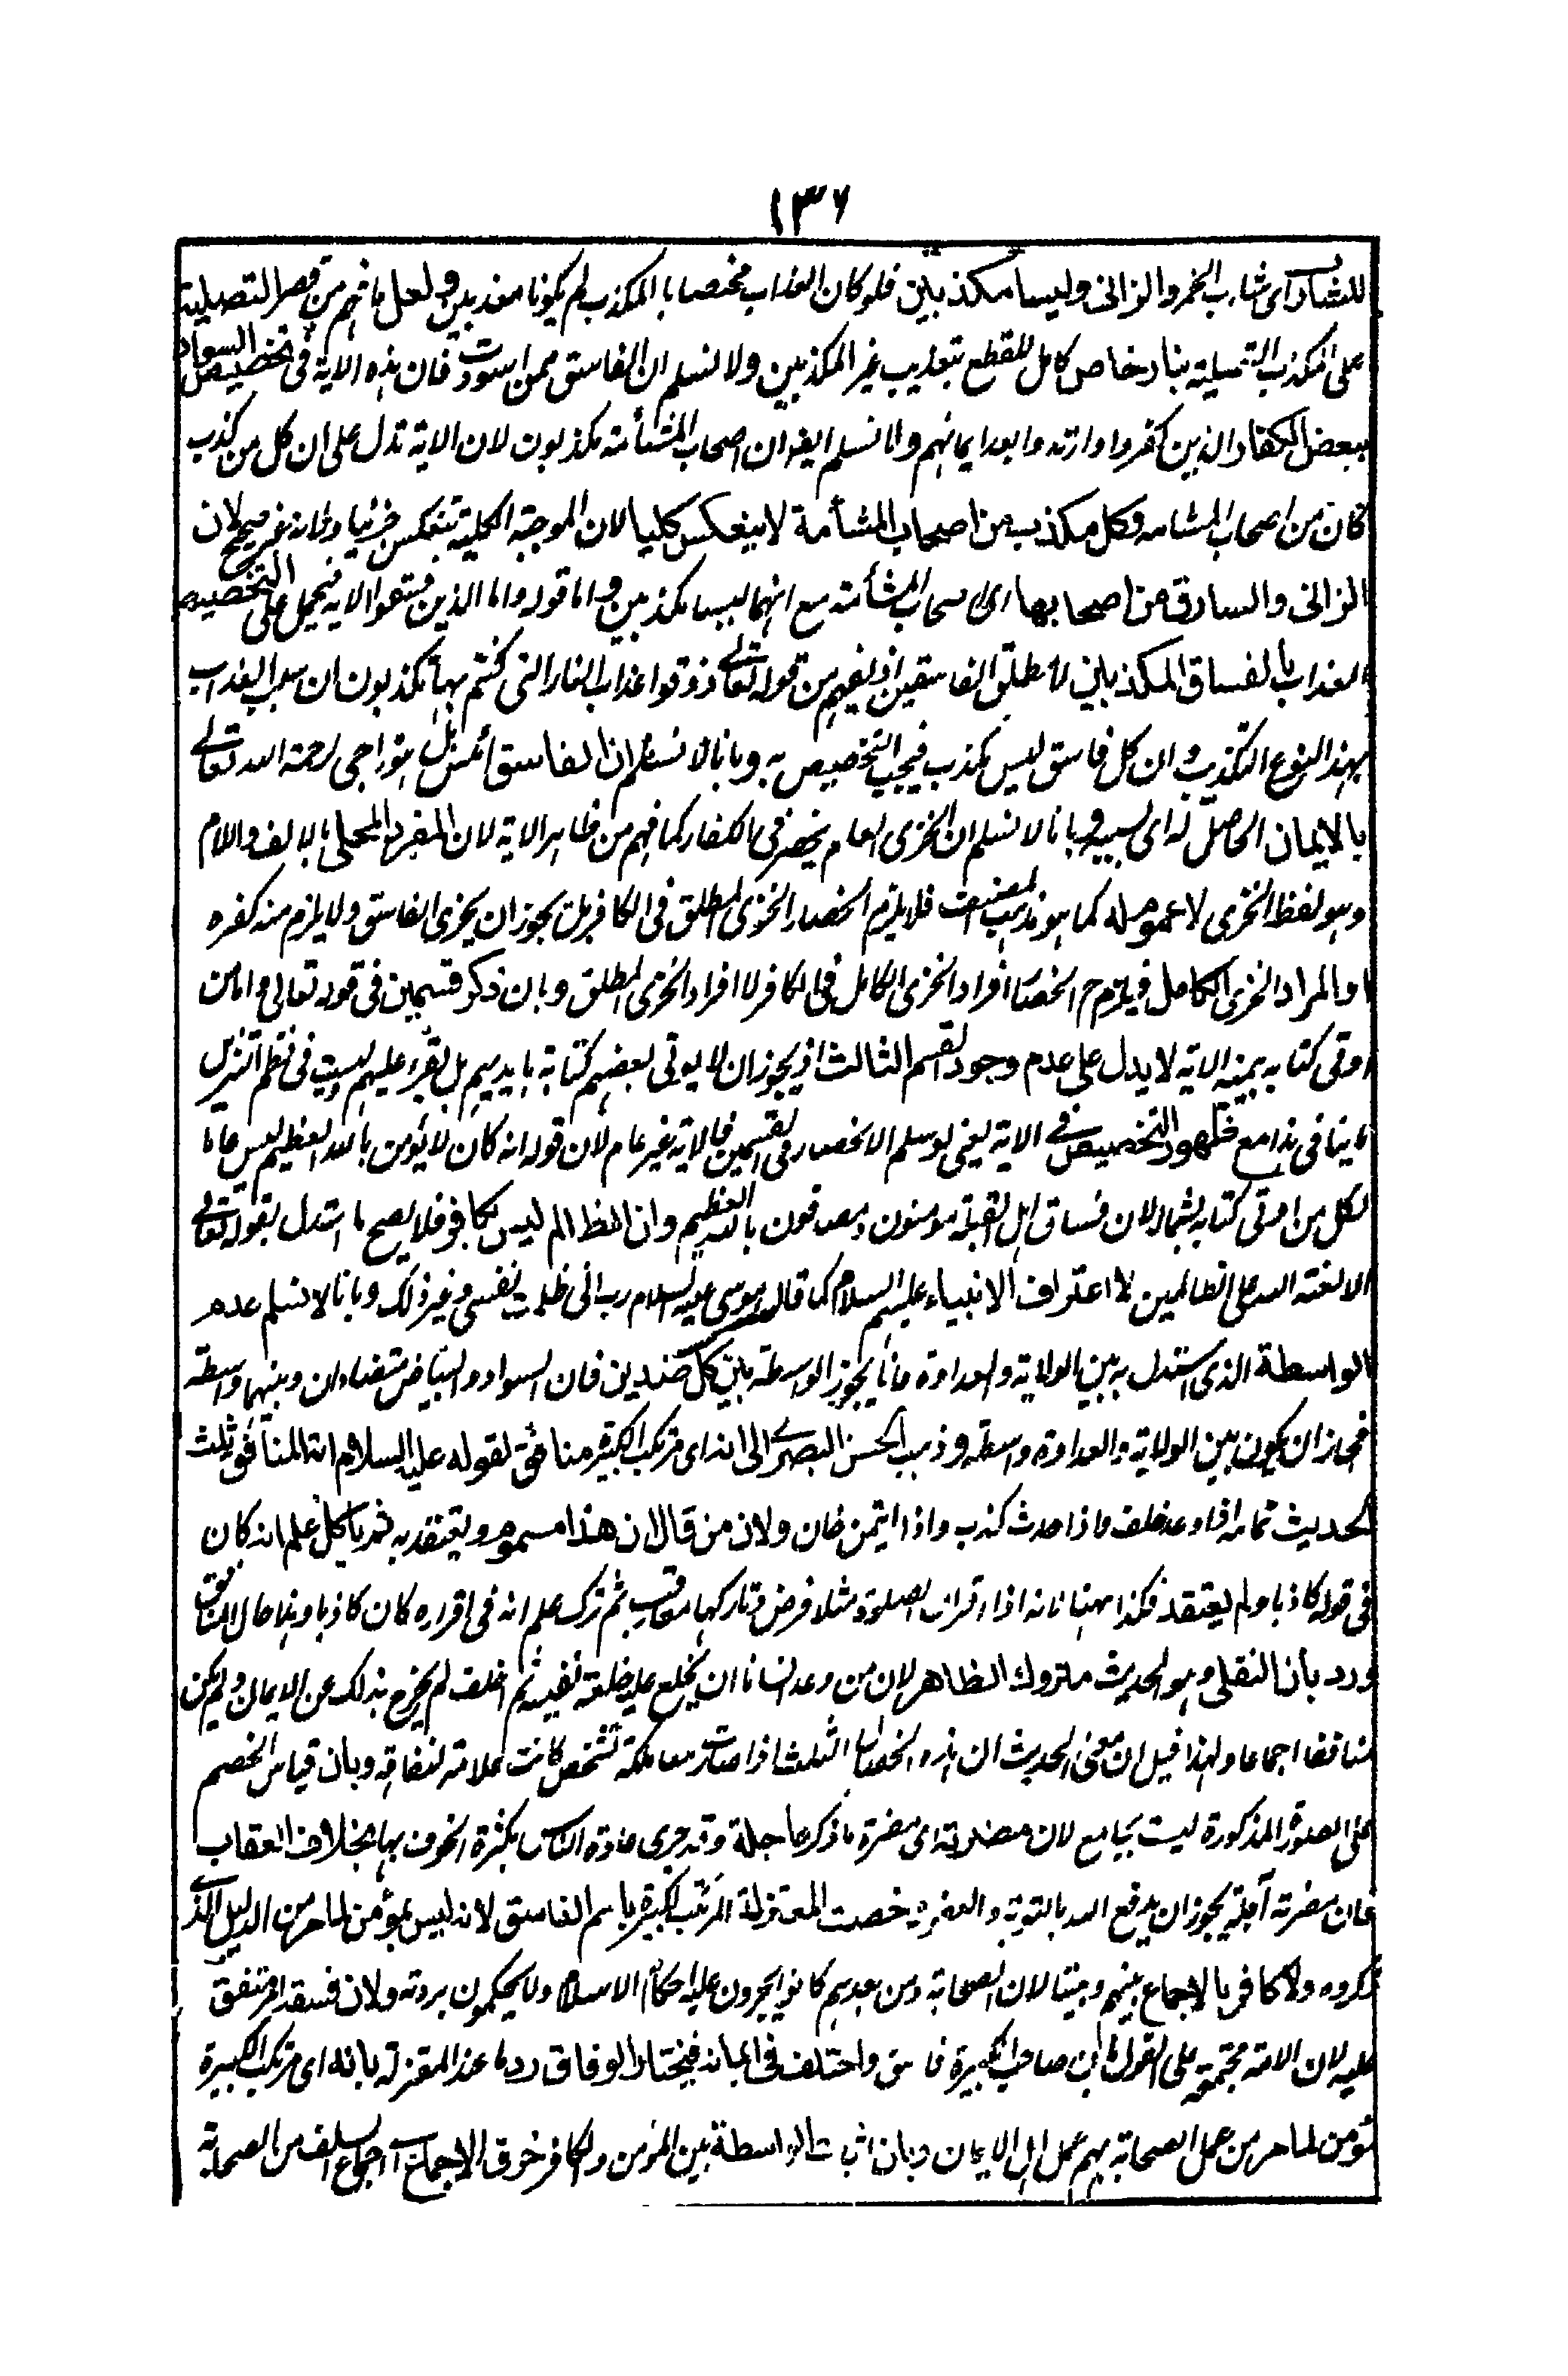 ١٣٦
للشارب اى شارب الخمر والزانى وليسا مكذبين فلو كان العذاب مختصا بالمكذب لم يكونا معذبين ولعل ما فهم من قصر التصلية
على المكذب التصلية بنار خاص كامل للقطع بتعذيب غير المكذبين ولا نسلم ان الفاسق ممن اسودت فان هذه الاية فى تخصيص السواد
ببعض الكفار الذين كفروا وارتدوا بعد ايمانهم ولا نسلم ايضا ان اصحاب المشأمة مكذبون لان الاية تدل على ان كل من كذب
كان من اصحاب المشامه وكل مكذب من اصحاب المشأمة لا ينعكس كليا لان الموجبة الكلية تنعكس جزئيا ولانه غير صحيح لان
الزانى والسارق من اصحابها اى اصحاب المشأمة مع انهما ليسا مكذبين واما قوله واما الذين فسقوا الاية فيحمل على التخصيص
العذاب بالفساق المكذبين لا مطلق الفاسقين اذ يفهم من قوله تعالى ذوقوا عذاب النار التى كنتم بها تكذبون ان سبب العذاب
بهذا النوع التكذيب وان كل فاسق ليس بمكذب فيجب التخصيص به وبانا لا نسلم ان الفاسق آئس بل هو راجى لرحمة الله تعالى
بالايمان الحاصل له اى بسببه وبانا لا نسلم ان الخزى العام ينحصر فى الكفار كما فهم من ظاهر الاية لان المفرد المحلى بالالف واللام
وهو لفظ الخزى لا عموم له كما هو مذهب المصنف فلا يلزم انحصار الخزى المطلق فى الكافر بل يجوز ان يخزى الفاسق ولا يلزم منه كفره
او المراد الخزى الكامل فيلزم ح انحصار افراد الخزى الكامل فى الكافر لا افراد الخزى المطلق وبان ذكر قسمين فى قوله تعالى واما من
اوتى كتابه بيمينه الاية لا يدل على عدم وجود القسم الثالث اذ يجوز ان لا يوتى بعضهم كتابة بايديهم بل يقرء عليهم وليست فى نظم التنزيل
ما ينافى هذا مع ظهور التخصيص فى الاية يعنى لو سلم الانحصار فى القسمين فالاية غير عام لان قوله انه كان لا يؤمن بالله العظيم ليس عاما
لكل من اوتى كتابه بشماله لان فساق اهل القبلة مومنون ومصدقون بالله العظيم وان الظالم ليس بكافر فلا يصح ما استدل بقوله تعالى
الا لعنة الله على الظالمين لاعتراف الانبياء عليهم السلام كما قال موسى عليه السلام رب انى ظلمت نفسى وغير ذلك وبانا لا نسلم عدم
الواسطة الذى استدل به بين الولاية والعداوة فانا يجوز الواسطة بين كل ضدين فان السواد والبياض متضادان وبينهما واسطة
فجاز ان يكون بين الولاية والعداوة واسطة وذهب الحسن البصرى الى انه اى مرتكب الكبيرة منافق لقوله عليه السلام اية المنافق ثلث
الحديث تمامه اذا وعد خلف واذا حدث كذب واذا ائتمن خان ولان من قال ان هذا مسموم ويعتقد به ثم ياكل علم انه كان
فى قوله كاذبا ولم يعتقد فكذا ههنا فانه اذا اقر ان الصلوة مثلا فرض وتاركها معاقب ثم ترك علم انه فى اقراره كان كاذبا وهذا حال المنافق
ورد بان النقلى وهو الحديث متروك الظاهر لان من وعد انسانا ان يخلع عليه خلعة نفيسة ثم اخلف لم يخرج بذلك عن الايمان ولم يكن
منافقا اجماعا ولهذا قيل ان معنى الحديث ان هذه الخصال الثلث اذا صارت ملكة لشخص كانت علامة لنفاقه وبان قياس الخصم
على الصورة المذكورة ليست بجامع لان مضرته اى مضرة ما ذكر عاجلة وقد جرى عادة الناس بكثرة الخوف بها بخلاف العقاب
فان مضرته آجلة يجوز ان يدفع الله بالتوبة والعفو وخصت المعتزلة المرتكب الكبيرة باسم الفاسق لانه ليس بمؤمن لما مر من الدليل الذى
ذكروه ولا كافر بالاجماع بينهم وبيننا لان الصحابة ومن بعدهم كانوا يجرون عليه احكام الاسلام ولا يحكمون بردته ولان فسقه امر متفق
عليه لان الامة مجتمعة على القول بان صاحب الكبيرة فاسق واختلف فى ايمانه فيختار الوفاق رد ما عند المعتزلة بانه اى مرتكب الكبيرة
مؤمن لما مر من عمل الصحابة بهم عمل اهل الايمان وبان اثبات الواسطة بين المؤمن والكافر خرق الاجماع اى اجماع السلف من الصحابة